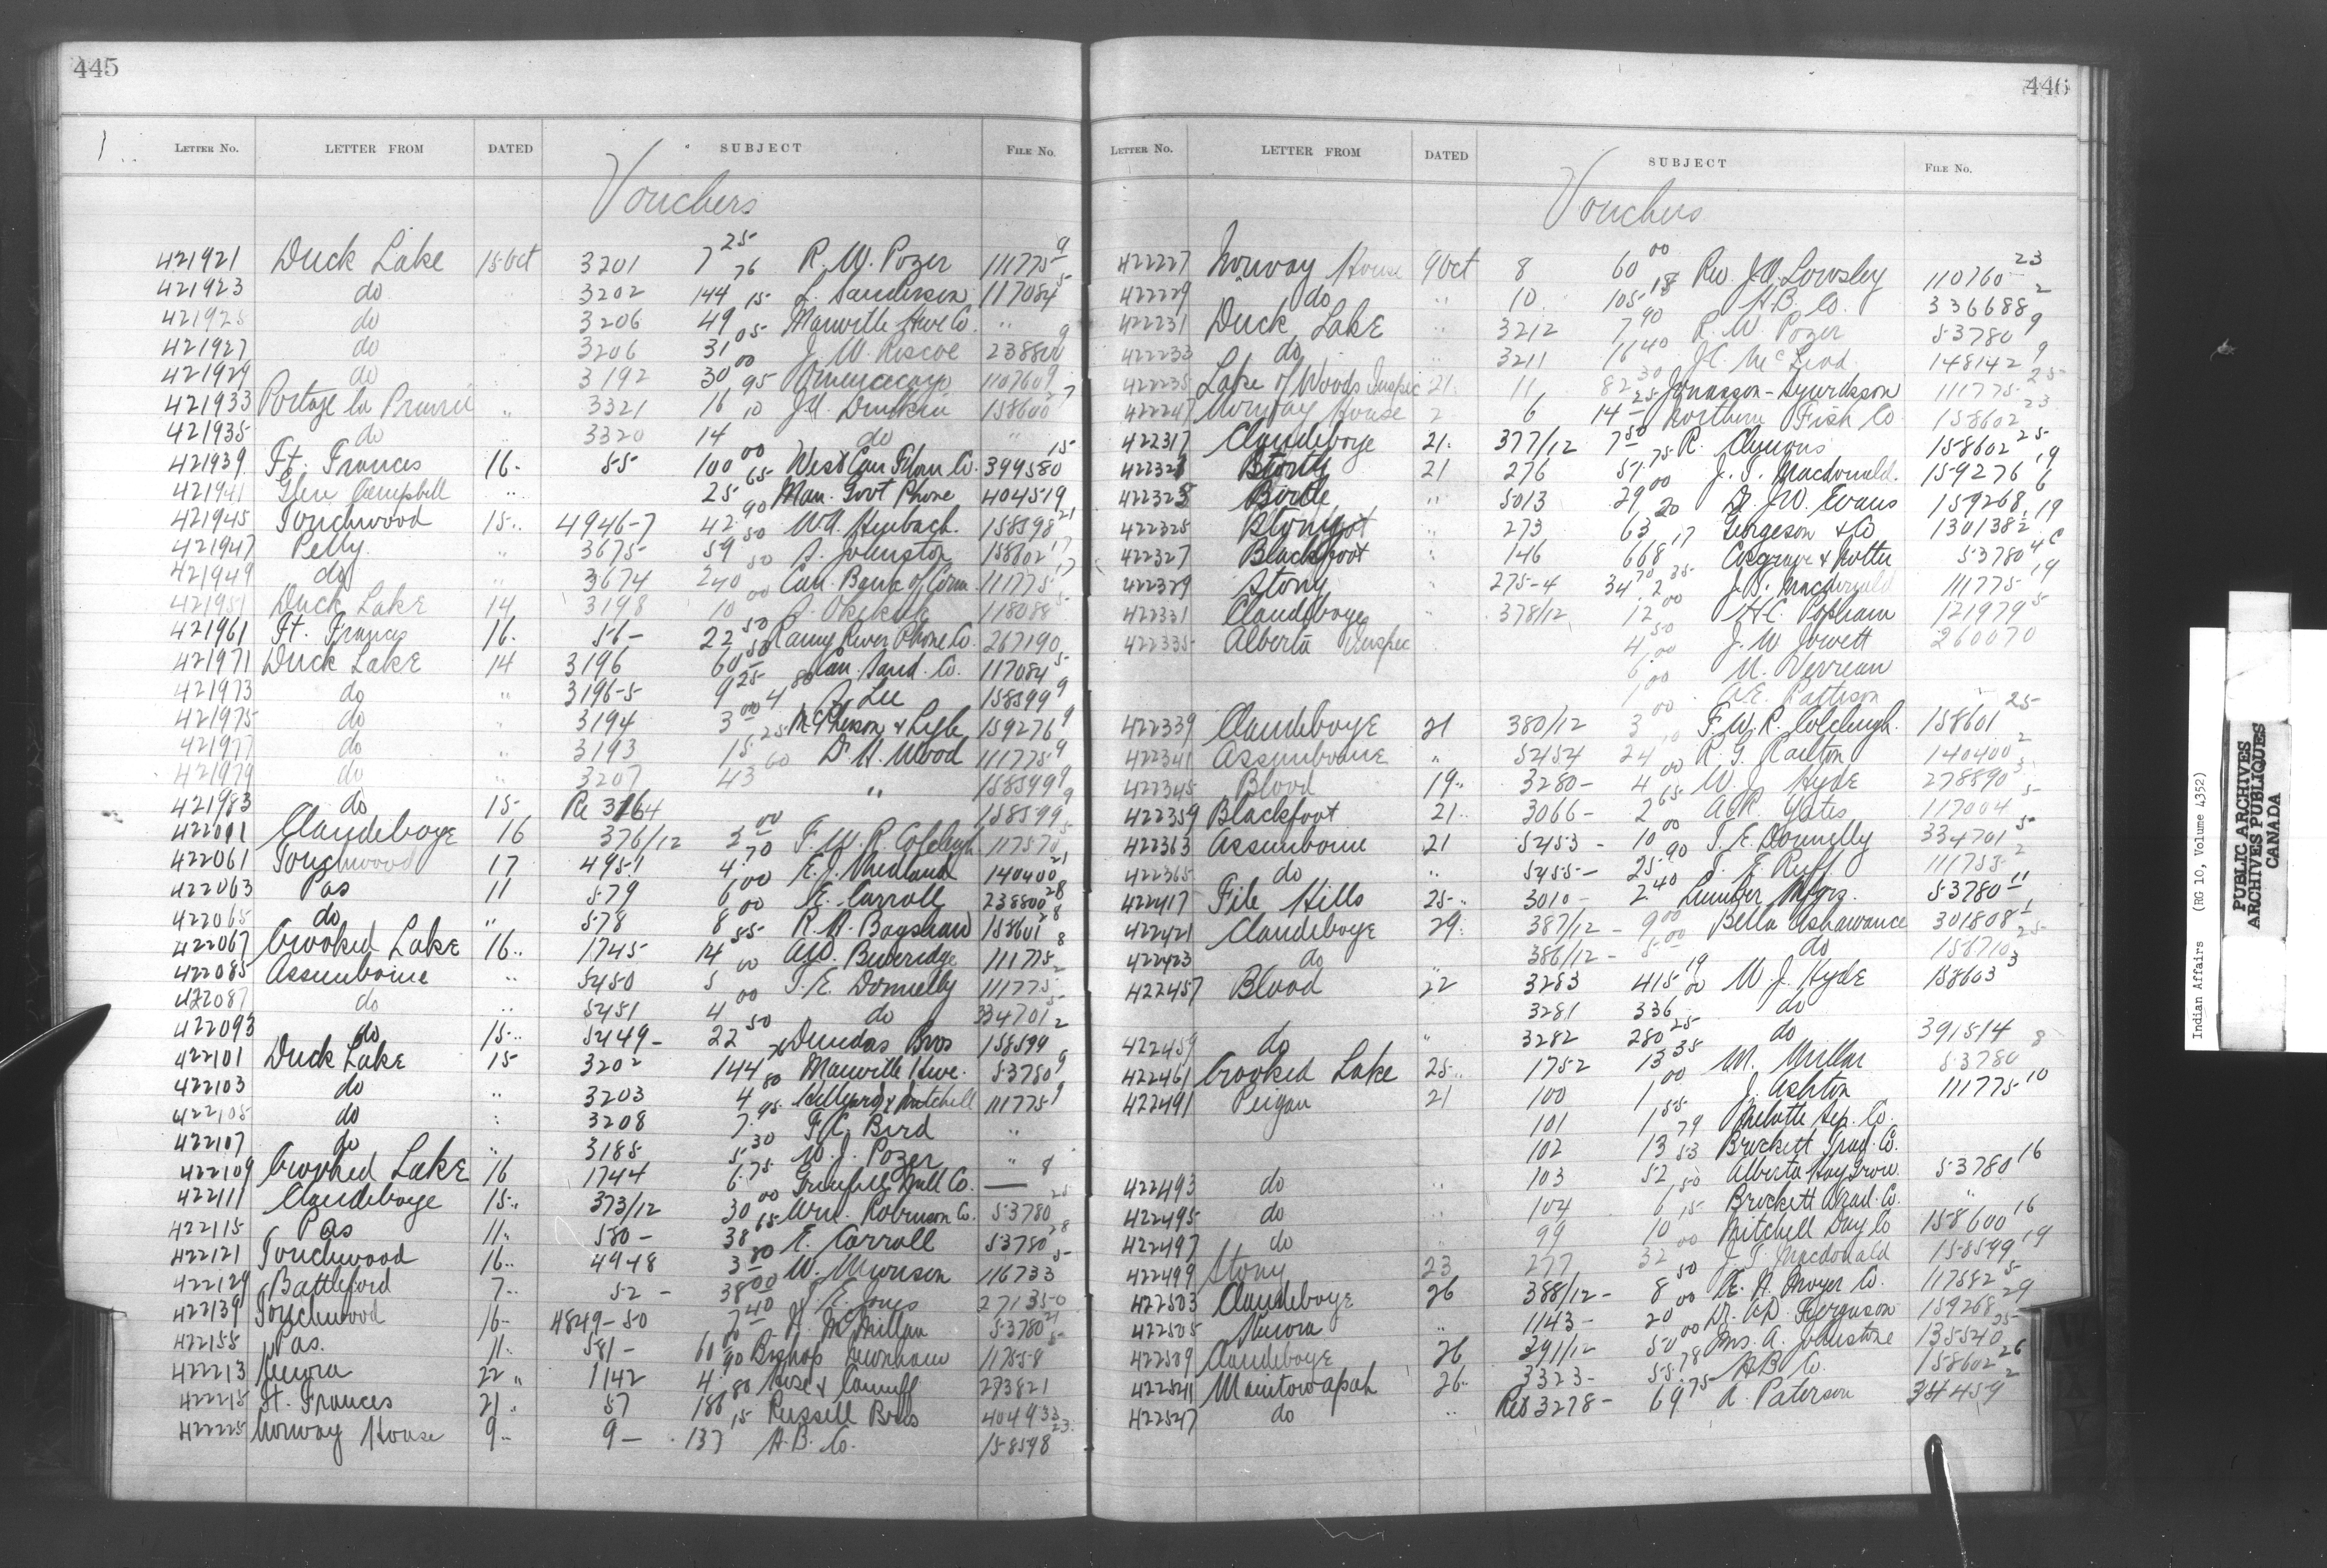 445
LETTER NO. LETTER FROM DATED SUBJECT FILE No.
Vouchers
421921 Duck Lake 15 Oct 3201 7 25 R. W. Pozer 111775 9
421923 do 3202 144 76 L. Sanderson 117084 5
421925 do 3206 49 15 Manville Hwe Co. "
421927 do 3206 31 05 J. W. Riscoe 238800 9
421929 do 3192 30 00 110760 9
421933 Portage la Prairie " 3321 16 95 J.A. 158600 7
421935 do " 3320 14 10 do "
421939 Ft. Frances 16 " 55 100 00 West Can Flour Co. 399580 15
421941 Glen Campbell " 25 65 Man. Govt Phone 404519
421945 Touchwood 15 " 4946-7 42 90 W.A. Heubach. 158598 21
421947 Pelly " 3675 59 50 A. Johnston 158602 17
421949 do " 3674 240 50 Can. Bank of Com. 111775 17
421951 Duck Lake 14 3198 10 00 118088 5
421961 Ft. Frances 16 " 56 - 22 50 Rainy River Phone Co. 267190
421971 Duck Lake 14 3196 60 50 Can. Sand. Co. 117084 5
421973 do " 3196-5 9 25 4 80 A. Lee 158599 9
421975 do " 3194 3 00 McPherson & Lyle 159276 9
421977 do " 3193 15 25 Dr. H. Wood 111775 9
421979 do " 3207 43 60 " 158599 9
421983 do 15 Re 3164 158599 9
422001 Clandeboye 16 376/12 3 00 F. W. R. Colcleugh 117570 5
422061 Touchwood 17 4951 4 70 E. J. 140400 21
422063 Pas 11 579 6 00 E. Carroll 238800 28
422065 do " 578 8 00 R. H. Bagshaw 158601 28
422067 Crooked Lake 16 " 1745 14 55 A.W. Beveridge 111775 8
422085 Assiniboine " 5450 5 00 T. E. Donnelly 111775 2
422087 do " 5451 4 00 do 334701 5
422093 do 15 " 5449 - 22 50 Dundas Bros 158599 2
422101 Duck Lake 15 3202 144 76 Manville Hwe. 53780 9
422103 do " 3203 4 80 & Mitchell 111775 9
422105 do " 3208 7 95 F.A. Bird "
422107 do " 3185 5 30 W. J. Pozer "
422109 Crooked Lake 16 1744 6 75 Grenfell Mill Co. — 8
422111 Clandeboye 15 " 373/12 30 00 Wm. Robinson Co. 53780 25
422115 Pas 11 " 580 - 38 65 E. Carroll 53780 28
422121 Touchwood 16 " 4948 3 80 W. Morrison 116733 5
422129 Battleford 7 " 52 - 38 00 T. E. Jones 271350
422139 Touchwood 16 - 4849-50 7 40 H. McMillan 53780 21
422155 Pas. 11 " 581 - 60 00 Bishop Newnham 117558 5
422213 Kenora 22 " 1142 4 90 Hose & Canniff 273821
422215 Ft. Frances 21 " 57 186 80 Russell Bros 404933
422225 Norway House 9 " 9 - 137 15 H. B. Co. 158598 23
446
LETTER NO. LETTER FROM DATED SUBJECT FILE No.
Vouchers
422227 Norway House 9 Oct 8 60 00 Rev. J.A. Lousley 110760 23
422229 do " 10 105 18 H. B. Co. 336688 2
422231 Duck Lake " 3212 7 90 R. W. Pozer 53780 9
422233 do " 3211 16 40 J.C. McLeod 148142 9
422235 Lake of Woods Inspec 21 " 11 82 30 111775 25
422247 Norway House 2 6 14 25 Northern Fish Co 158602 23
422317 Clandeboye 21 " 377/12 7 50 R. 158602 25
21 276 51 75 J. S. Macdonald. 159276 19
Birtle " 5013 29 00 Dr. J.W. Evans 159268 6
422325 " 273 63 20 Georgeson & Co 130138 19
422327 Blackfoot " 146 668 17 Cosgrave & 53780
422329 Stony " 275-4 34 70 2 35 J. S. Macdonald 111775 19
422331 Clandeboye " 378/12 12 00 H. C. Popham 121979 5
422335 Alberta Inspec 4 50 J. W. Jowett 260070
6 00 N. Verreau
1 00 A.E. Pattison "
422339 Clandeboye 21 380/12 3 00 F. W. R. Colcleugh. 158601 25
422341 Assiniboine " 5454 24 10 R. G. Railton 140400 2
422345 Blood 19 " 3280 - 4 00 W. J. Hyde 278590 3
422359 Blackfoot 21 " 3066 - 2 65 A.R. Yates 117004 5
422363 Assiniboine 21 5453 - 10 00 T. E. Donnelly 334701 5
422365 do " 5455 - 25 90 T. E. Ruff 111755 2
422417 File Hills 25 " 3010 - 2 40 Lumber Mfgrs. 53780 11
422421 Clandeboye 29 " 387/12 - 9 00 Bella Ashawance 301808 1
422423 do 386/12 - 5 00 do 158710 25
422457 Blood 22 3283 415 19 W. J. Hyde 158603 3
3281 336 20 do
422459 do " 3282 280 25 do 391514
422461 Crooked Lake 25 " 1752 13 35 M. Millar 53780 8
422491 Peigan 21 100 1 00 J. Ashton 111775 10
101 1 55 Melotte Sep. Co.
102 13 79 Brockett Trad. Co.
422493 do " 103 52 53 Alberta Hay Grow. 53780 16
422495 do " 104 6 50 Brockett Trad. Co. "
422497 do " 99 10 15 Mitchell Drug Co 158600 16
422499 Stony 23 277 32 00 J. S. Macdonald 158599 19
422503 Clandeboye 26 388/12 - 8 50 E. N. Moyer Co. 117582 5
422505 Kenora " 1143 - 20 00 Dr. Ferguson 159268 29
422509 Clandeboye 26 391/12 50 00 Mrs. A. Johnstone 135540 25
422541 Manitowapah 26 " 3323 - 55 78 H B Co. 158602 26
422547 do " Re 3278 - 69 75 A. Paterson 34459 2
Indian Affairs (RG 10, Volume 4352)
PUBLIC ARCHIVES
ARCHIVES PUBLIQUES
CANADA